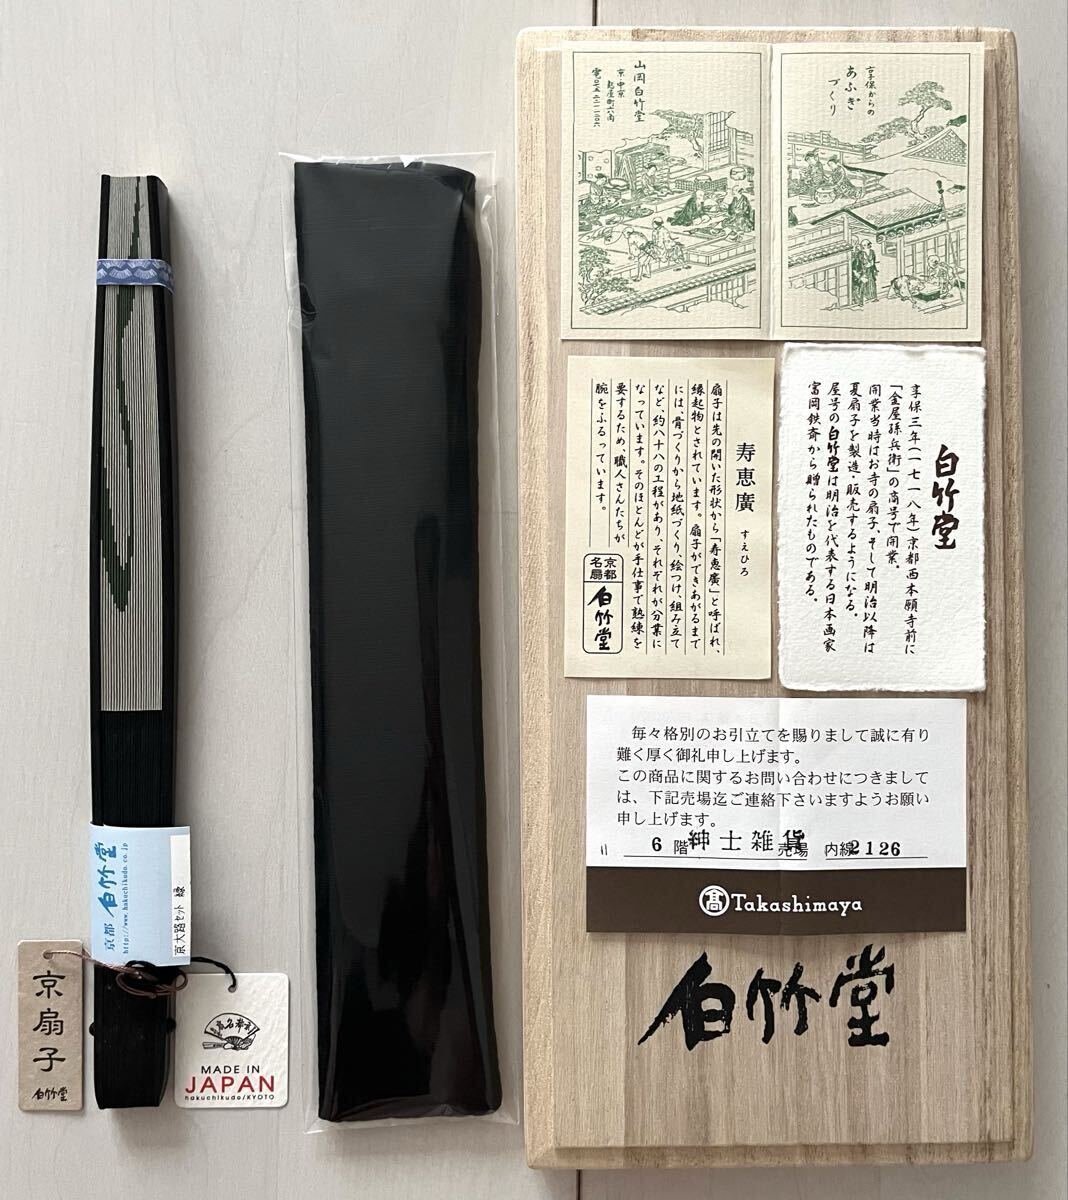 京都 白竹堂
http://www.hakuchikudo.co.jp
京大路セット 緑
京扇子
白竹堂
MADE IN
JAPAN
hakuchikudo/KYOTO
享保からの
あふぎ
づくり
山岡白竹堂
京・中京
寿恵廣 すえひろ
扇子は先の開いた形状から「寿恵廣」と呼ばれ、
縁起物とされています。扇子ができあがるまで
には、骨づくりから地紙づくり、絵つけ、組み立て
など、約八十八の工程があり、それぞれが分業に
なっています。そのほとんどが手仕事で熟練を
要するため、職人さんたちが
腕をふるっています。
京都
名扇
白竹堂
白竹堂
享保三年(一七一八年)京都西本願寺前に
「金屋孫兵衛」の商号で開業。
開業当時はお寺の扇子、そして明治以降は
夏扇子を製造・販売するようになる。
屋号の白竹堂は明治を代表する日本画家
富岡鉄斎から贈られたものである。
毎々格別のお引立てを賜りまして誠に有り
難く厚く御礼申し上げます。
この商品に関するお問い合わせにつきまして
は、下記売場迄ご連絡下さいますようお願い
申し上げます。
6 階 紳士雑貨 売場 内線 2126
髙 Takashimaya
白竹堂